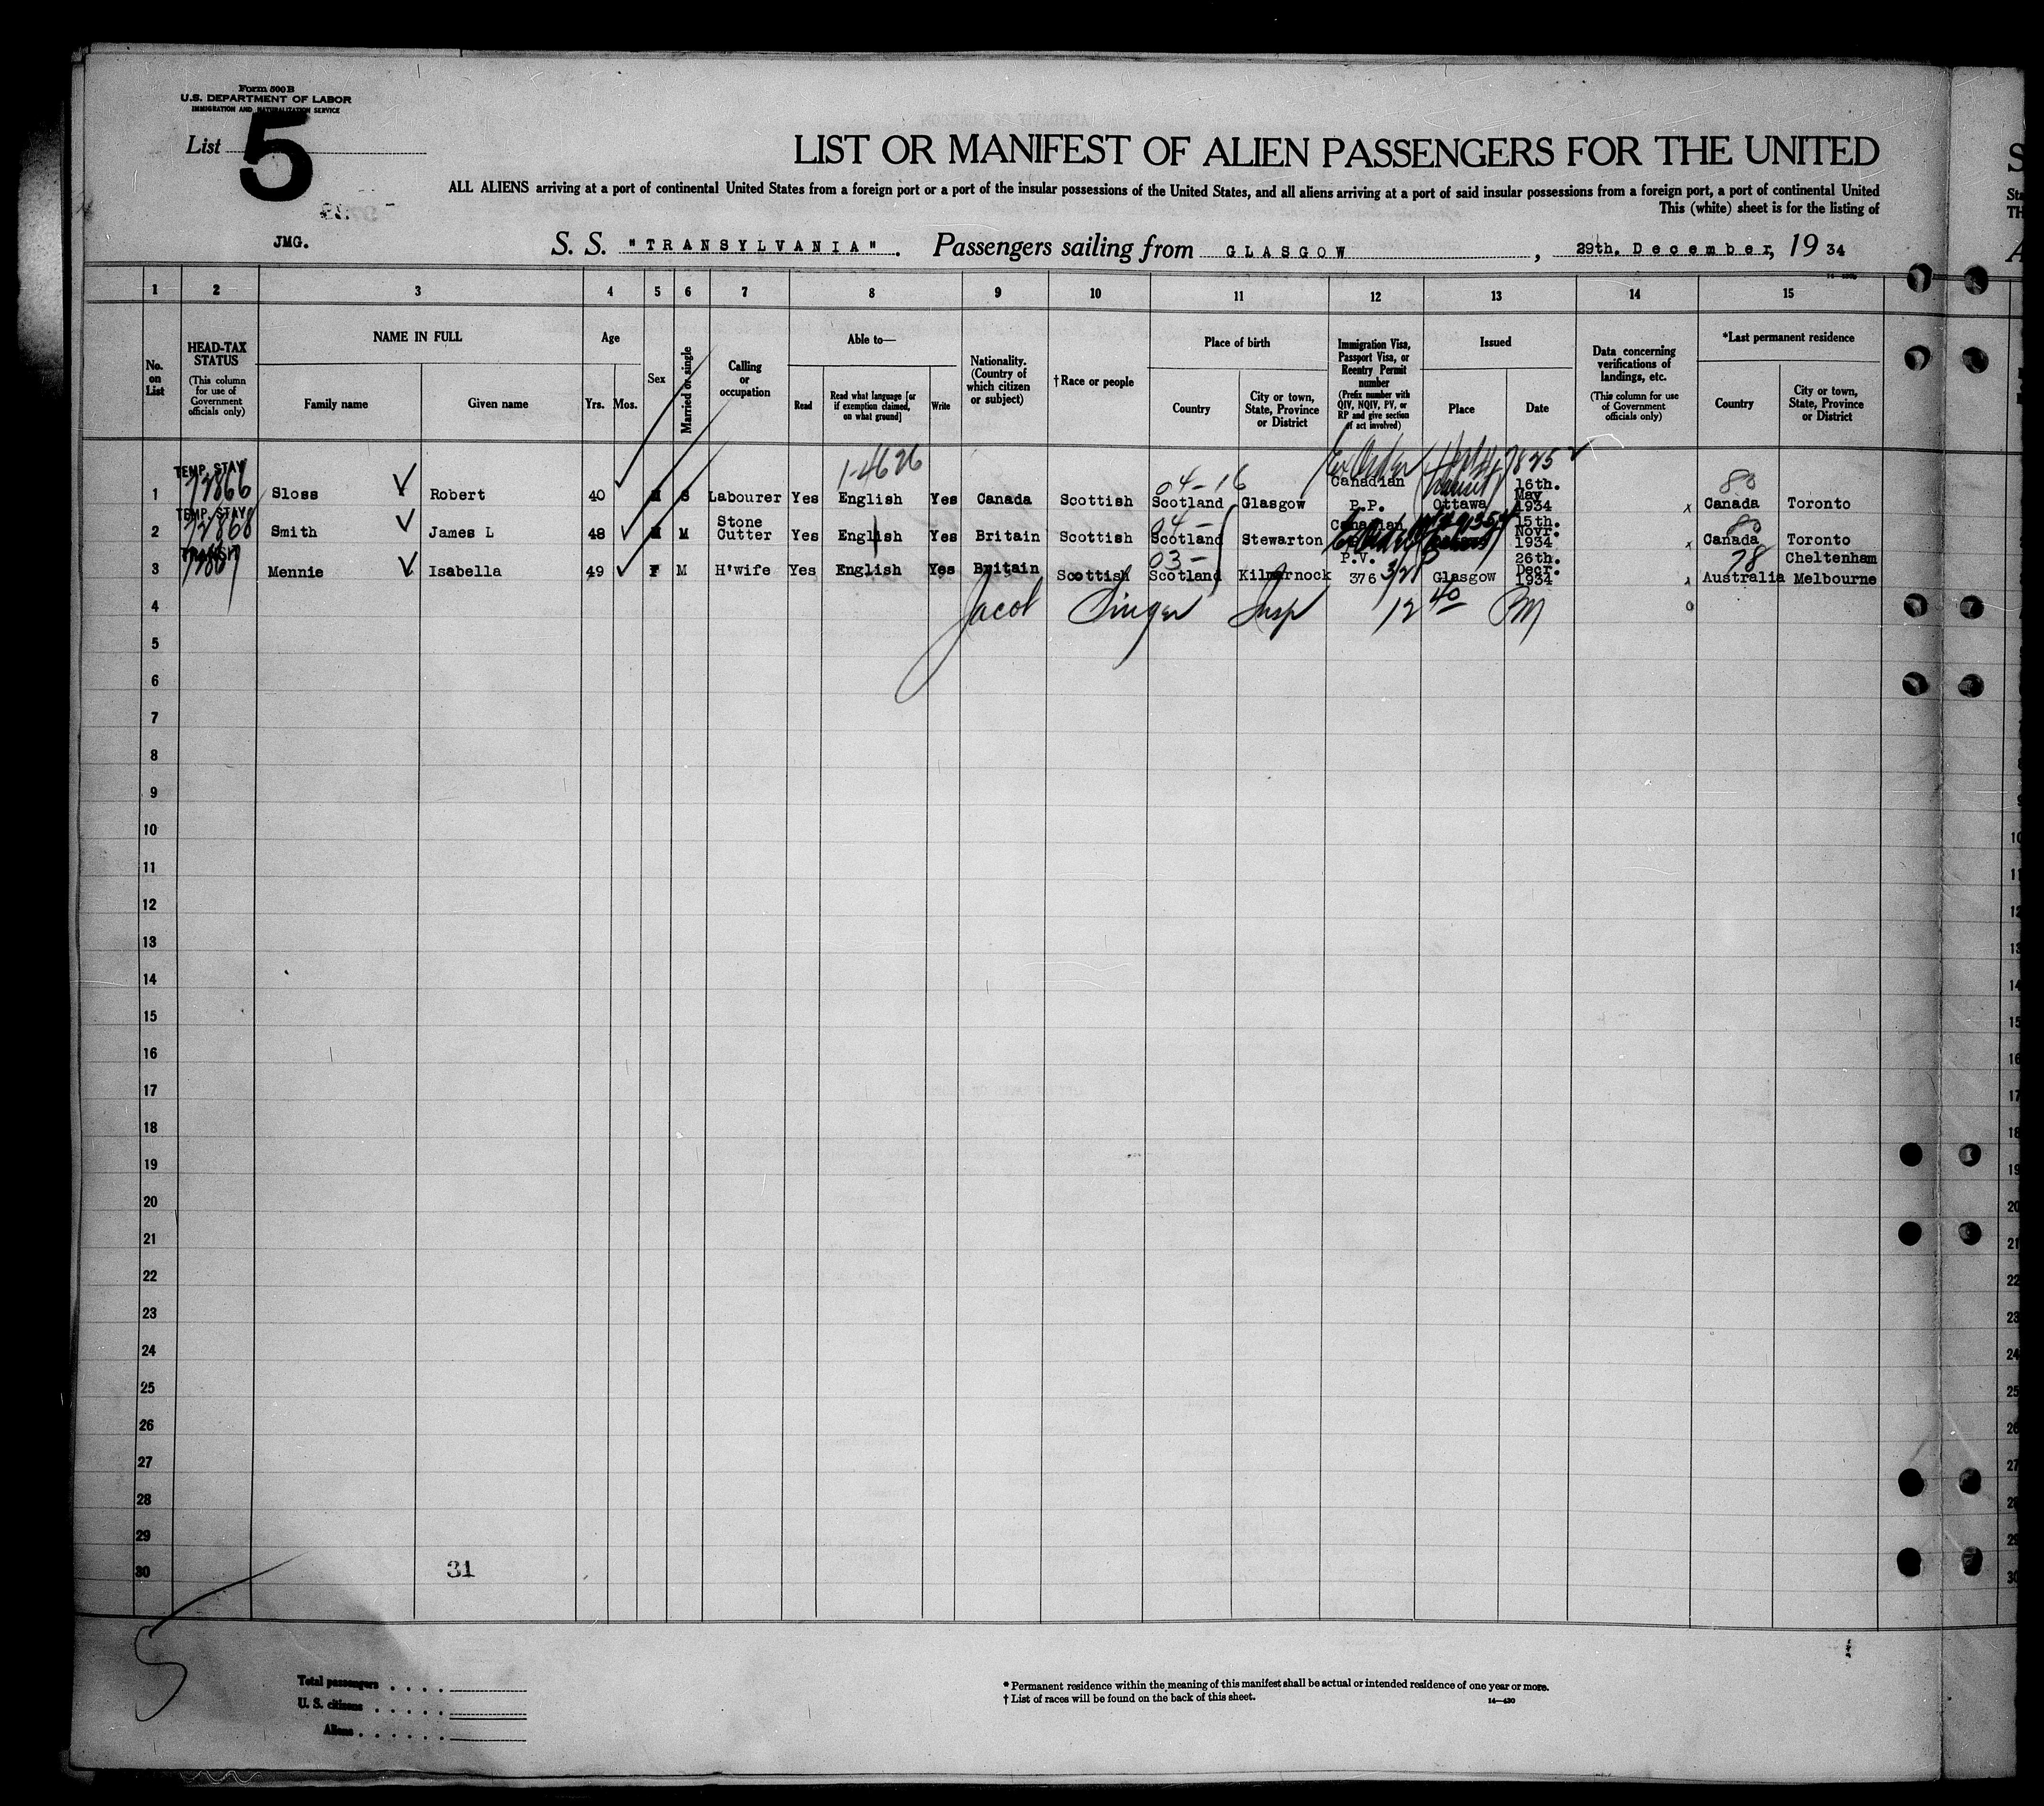 Form 500B
U.S. DEPARTMENT OF LABOR
IMMIGRATION AND NATURALIZATION SERVICE
List 5
LIST OR MANIFEST OF ALIEN PASSENGERS FOR THE UNITED
ALL ALIENS arriving at a port of continental United States from a foreign port or a port of the insular possessions of the United States, and all aliens arriving at a port of said insular possessions from a foreign port, a port of continental United
This (white) sheet is for the listing of
JMG.
S. S. "TRANSYLVANIA". Passengers sailing from GLASGOW, 29th. December, 19 34
1 2 3 4 5 6 7 8 9 10 11 12 13 14 15
No. on List
HEAD-TAX STATUS
(This column for use of Government officials only)
NAME IN FULL
Family name
Given name
Age
Yrs. Mos.
Sex
Married or single
Calling or occupation
Able to—
Read
Read what language [or if exemption claimed, on what ground]
Write
Nationality. (Country of which citizen or subject)
†Race or people
Place of birth
Country
City or town, State, Province or District
Immigration Visa, Passport Visa, or Reentry Permit number
(Prefix number with QIV, NQIV, PV, or RP and give section of act involved)
Issued
Place
Date
Data concerning verifications of landings, etc.
(This column for use of Government officials only)
*Last permanent residence
Country
City or town, State, Province or District
1-4626 04-16 7825 80
1 TEMP. STAY 72866 Sloss Robert 40 M S Labourer Yes English Yes Canada Scottish Scotland Glasgow Canadian P.P. Ottawa 16th. May 1934 x Canada Toronto
04- 80
2 TEMP. STAY 72868 Smith James L 48 M M Stone Cutter Yes English Yes Britain Scottish Scotland Stewarton Canadian 15th. Novr. 1934 x Canada Toronto
03- 78
3 TRANSIT Mennie Isabella 49 F M H'wife Yes English Yes Britain Scottish Scotland Kilmarnock P.V. 376 3/21 Glasgow 26th. Decr. 1934 x Australia Cheltenham Melbourne
4 Jacob Singer Insp 12 40 PM
5
6
7
8
9
10
11
12
13
14
15
16
17
18
19
20
21
22
23
24
25
26
27
28
29
30
31
5
Total passengers
U. S. citizens
Aliens
* Permanent residence within the meaning of this manifest shall be actual or intended residence of one year or more.
† List of races will be found on the back of this sheet.
14—420